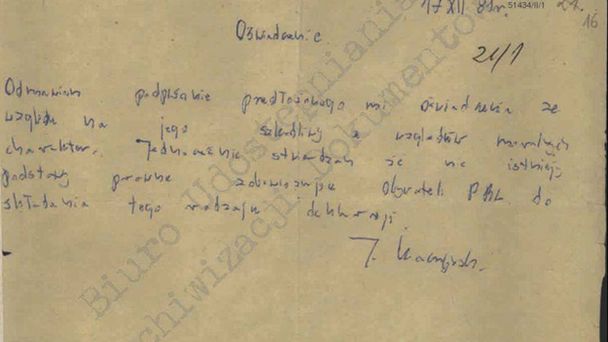 17 XII 81r.
51434/II/1
24.
16
Oświadczenie
21/1
Odmawiam podpisania przedłożonego mi oświadczenia ze
względu na jego szkodliwy z względów moralnych
charakter. Jednocześnie stwierdzam że nie istnieją
podstawy prawne zobowiązujące Obywateli PRL do
składania tego rodzaju deklaracji
J. Kaczyński.
Biuro Udostępniania
i Archiwizacji Dokumentów